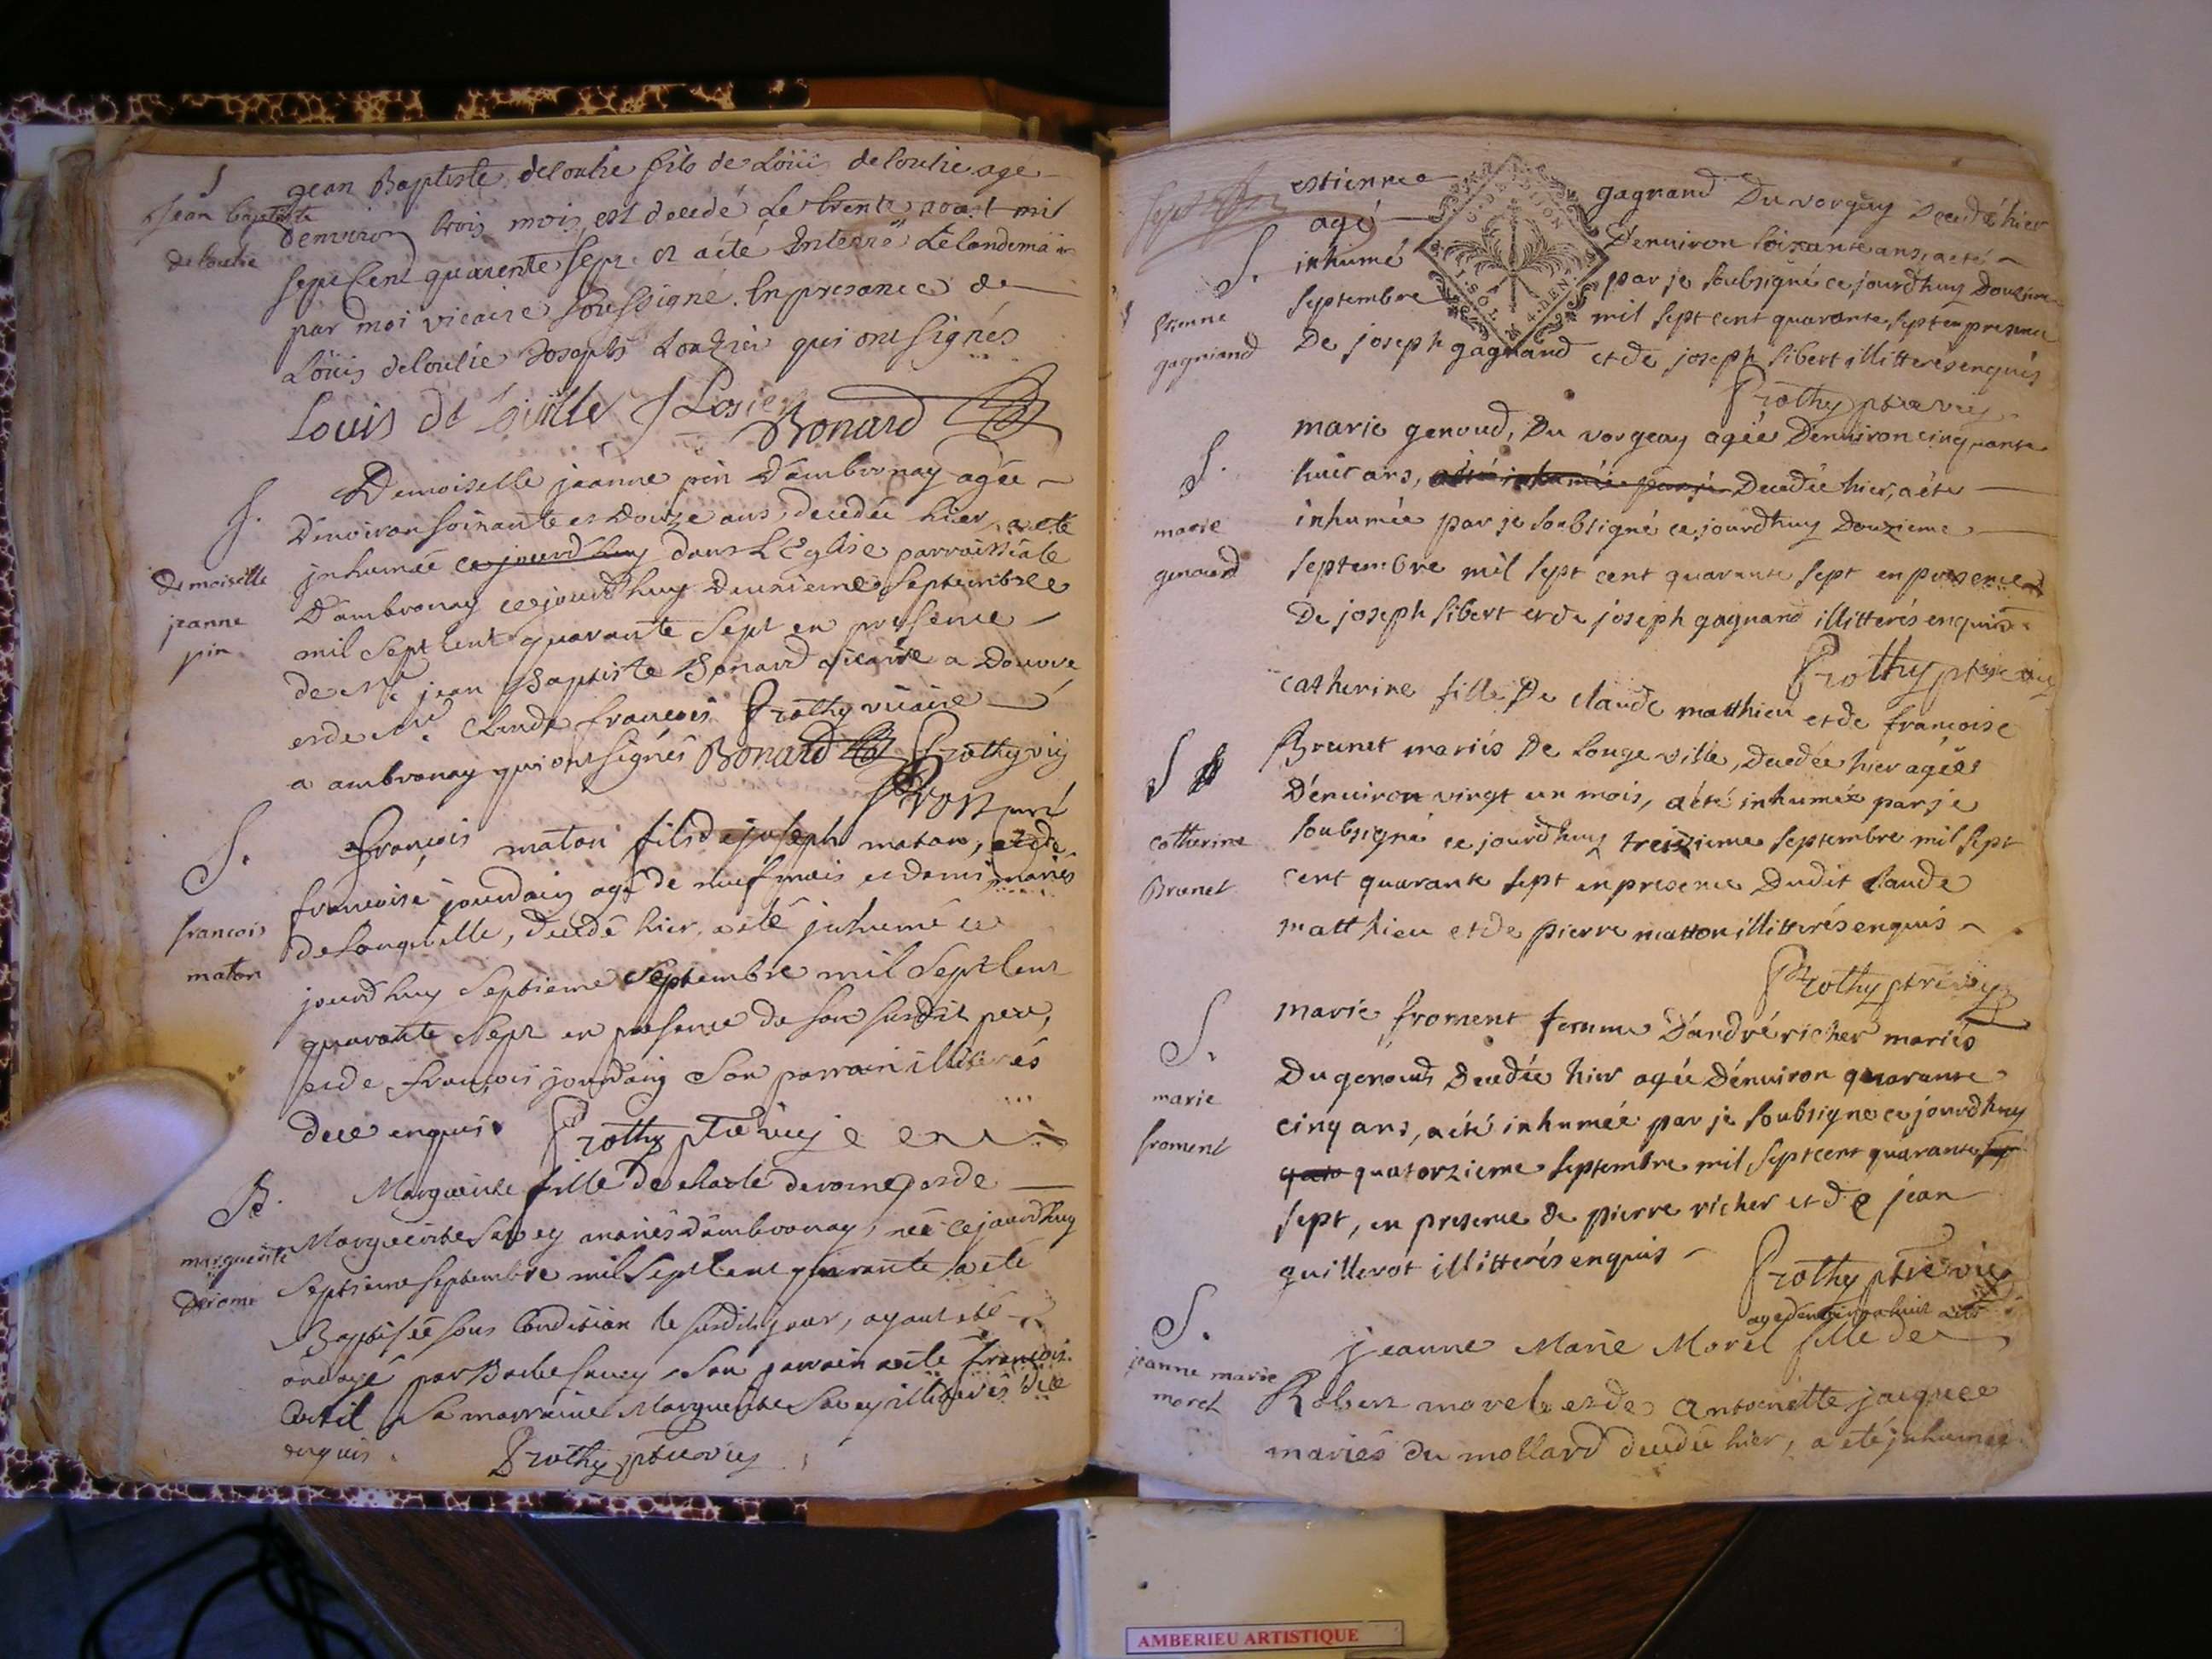 S
jean baptiste
deloulie
jean Baptiste deloulie fils de Loüis deloulie age
denviron trois mois, est decedé Le trente aout mil
sept Cent quarente sept et a été Enterré Le landemain
par moi vicaire soussigné. En presance de
Loüis deloulie Joseph Lozier qui ont signés
Louis de J Losier
Bonard
S.
demoiselle
jeanne
pin
Demoiselle jeanne pin D'ambronay agée
Denviron soixante et Douze ans, decedée hier, a eté
inhumée ce jourd'huy dans L'Eglise parroissiale
D'ambronay ce jourd'huy Deuxieme Septembre
mil Sept Cent quarante Sept en presence
de Mre jean Baptiste Bonard vicaire a Douvre
et de Mre Claude françois Brothy vicaire
a ambronay qui ont signés Bonard Brothy vic
S.
francois
maton
françois maton fils de joseph maton, et de
francoise jourdain agé de neuf mois et demi mariés
de Longeville, decedé hier, a eté inhumé ce
jourd'huy Septieme Septembre mil Sept Cent
quarante Sept en presence de son susdit pere,
et de françois jourdain Son parrain illiterés
de ce enquis. Brothy ptre vic
B.
marguerite
derome
Marguerite fille de charle derome et de
Marguerite Savey mariés d'ambronay, née ce jourd'huy
Septieme Septembre mil Sept Cent quarante a eté
Baptisée sous Condition le susdit jour, ayant eté
ondoyé par Savey, Son parrain a eté françois
Cortil Sa marraine Marguerite Savey illiterés de ce
enquis. Brothy ptre vic
S.
Etienne
gagniand
estienne gagnand Du vorgey Decedé hier
agé D'enuiron soixante ans, a eté
inhumé par je soubsigné ce jourd'huy Douzieme
septembre mil sept cent quarante sept en presence
De joseph gagnand et de joseph sibert illitterés enquis
Brothy ptre vic
S.
marie
genoud
marie genoud, Du vorgeay agée Denuiron cinquante
huit ans, a été inhumée par je Decedée hier, a eté
inhumée par je soubsigné ce jourd'huy Douzieme
septembre mil sept cent quarante sept en presence
De joseph sibert et de joseph gagnand illitterés enquis
Brothy ptre vic
S
catherine
Brunet
catherine fille De claude matthieu et de francoise
Brunet mariés De Longe ville, decedée hier agée
D'enuiron vingt un mois, a été inhumée par je
soubsigné ce jourd'huy treizieme septembre mil sept
cent quarante sept en presence Dudit claude
matthieu et de pierre matton illitterés enquis
Brothy ptre vic
S.
marie
froment
marie froment femme D'andré richer mariés
Du genoud Decedée hier agée D'enuiron quarante
cinq ans, a été inhumée par je soubsigné ce jourd'huy
quatorzieme septembre mil sept cent quarante
sept, en presence de pierre richer et de jean
quillerot illitterés enquis
Brothy ptre vic
S.
jeanne marie
morel
agée denviron huit ans
jeanne Marie Morel fille de
Robert morel et de Antoinette jacquee
mariés du mollard decedée hier, a eté inhumée
AMBERIEU ARTISTIQUE